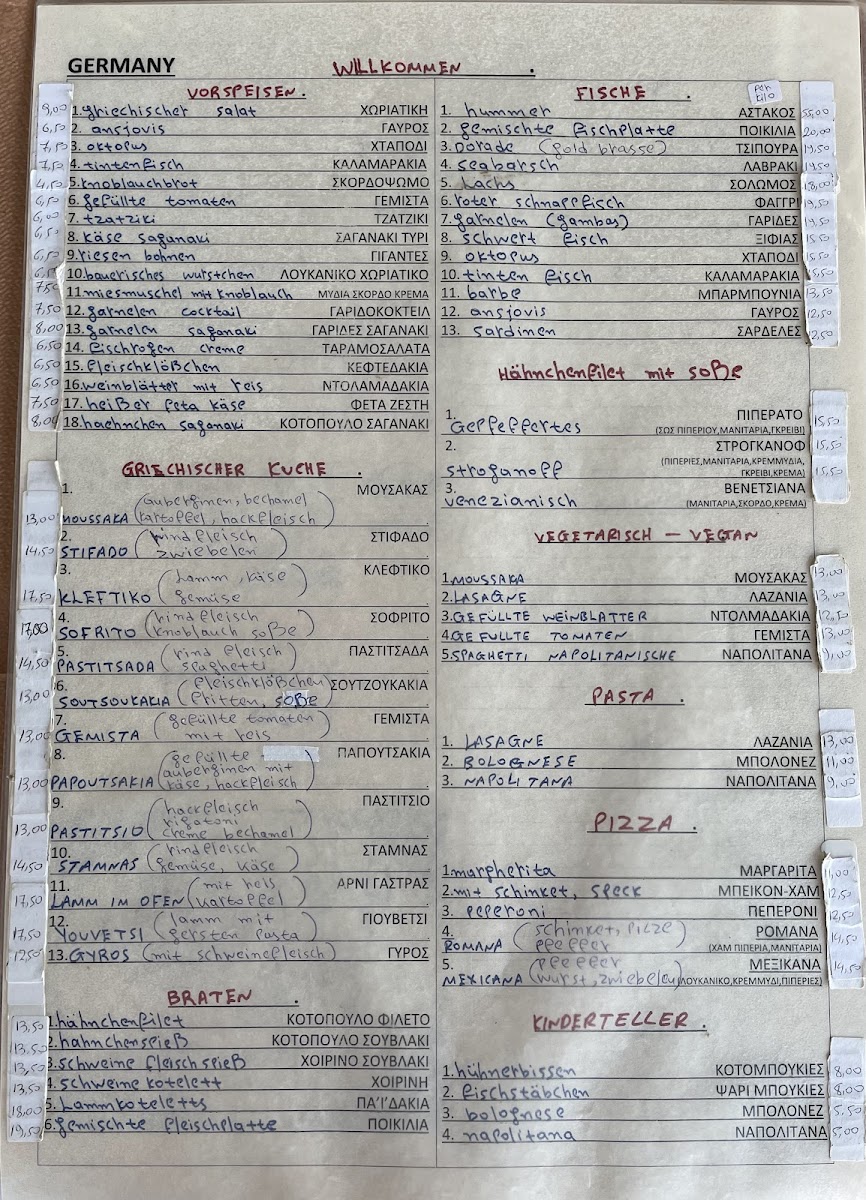 GERMANY
WILLKOMMEN .
VORSPEISEN .
9,00 1. griechischer salat ΧΩΡΙΑΤΙΚΗ
6,50 2. ansjovis ΓΑΥΡΟΣ
7,50 3. oktopus ΧΤΑΠΟΔΙ
7,50 4. tintenfisch ΚΑΛΑΜΑΡΑΚΙΑ
4,50 5. knoblauchbrot ΣΚΟΡΔΟΨΩΜΟ
6,50 6. gefüllte tomaten ΓΕΜΙΣΤΑ
6,00 7. tzatziki ΤΖΑΤΖΙΚΙ
6,50 8. käse saganaki ΣΑΓΑΝΑΚΙ ΤΥΡΙ
9. riesen bohnen ΓΙΓΑΝΤΕΣ
6,50 10. bauerisches wurstchen ΛΟΥΚΑΝΙΚΟ ΧΩΡΙΑΤΙΚΟ
7,50 11. miesmuschel mit knoblauch ΜΥΔΙΑ ΣΚΟΡΔΟ ΚΡΕΜΑ
7,50 12. garnelen cocktail ΓΑΡΙΔΟΚΟΚΤΕΙΛ
8,00 13. garnelen saganaki ΓΑΡΙΔΕΣ ΣΑΓΑΝΑΚΙ
6,50 14. fischrogen creme ΤΑΡΑΜΟΣΑΛΑΤΑ
6,50 15. fleischklößchen ΚΕΦΤΕΔΑΚΙΑ
6,50 16. weinblätter mit reis ΝΤΟΛΑΜΑΔΑΚΙΑ
7,50 17. heißer feta käse ΦΕΤΑ ΖΕΣΤΗ
8,00 18. haehnchen saganaki ΚΟΤΟΠΟΥΛΟ ΣΑΓΑΝΑΚΙ
GRIECHISCHER KUCHE .
1. (auberginen, bechamel ΜΟΥΣΑΚΑΣ
13,00 MOUSSAKA kartoffel, hackfleisch)
2. (rindfleisch ΣΤΙΦΑΔΟ
14,50 STIFADO zwiebelen)
3. (lamm, käse ΚΛΕΦΤΙΚΟ
17,50 KLEFTIKO gemüse)
4. (rindfleisch ΣΟΦΡΙΤΟ
17,00 SOFRITO knoblauch soße)
5. (rind fleisch ΠΑΣΤΙΤΣΑΔΑ
14,50 PASTITSADA spaghetti)
6. (fleischklößchen ΣΟΥΤΖΟΥΚΑΚΙΑ
13,00 SOUTSOUKAKIA fritten, soße)
7. (gefüllte tomaten ΓΕΜΙΣΤΑ
13,00 GEMISTA mit reis)
8. (gefüllte ΠΑΠΟΥΤΣΑΚΙΑ
auberginen mit
13,00 PAPOUTSAKIA käse, hackfleisch)
9. (hackfleisch ΠΑΣΤΙΤΣΙΟ
rigatoni
13,00 PASTITSIO creme bechamel)
10. (rindfleisch ΣΤΑΜΝΑΣ
14,50 STAMNAS gemüse, käse)
11. (mit reis ΑΡΝΙ ΓΑΣΤΡΑΣ
17,50 LAMM IM OFEN kartoffel)
12. (lamm mit ΓΙΟΥΒΕΤΣΙ
17,50 YOUVETSI gersten pasta)
12,50 13. GYROS (mit schweinefleisch) ΓΥΡΟΣ
BRATEN .
13,50 1. hähnchenfilet ΚΟΤΟΠΟΥΛΟ ΦΙΛΕΤΟ
13,50 2. hahnchenspieß ΚΟΤΟΠΟΥΛΟ ΣΟΥΒΛΑΚΙ
13,50 3. schweine fleisch spieß ΧΟΙΡΙΝΟ ΣΟΥΒΛΑΚΙ
13,50 4. schweine kotelett ΧΟΙΡΙΝΗ
18,00 5. Lammkoteletts ΠΑ'Ι'ΔΑΚΙΑ
19,50 6. gemischte fleischplatte ΠΟΙΚΙΛΙΑ
FISCHE .
per kilo
1. hummer ΑΣΤΑΚΟΣ 55,00
2. gemischte fischplatte ΠΟΙΚΙΛΙΑ 20,00
3. Dorade (gold brasse) ΤΣΙΠΟΥΡΑ 19,50
4. seabarsch ΛΑΒΡΑΚΙ 19,50
5. Lachs ΣΟΛΩΜΟΣ 18,00
6. roter schnappfisch ΦΑΓΓΡΙ 19,50
7. garnelen (gambas) ΓΑΡΙΔΕΣ 19,50
8. schwert fisch ΞΙΦΙΑΣ 15,50
9. oktopus ΧΤΑΠΟΔΙ 15,50
10. tinten fisch ΚΑΛΑΜΑΡΑΚΙΑ 15,50
11. barbe ΜΠΑΡΜΠΟΥΝΙΑ 13,50
12. ansjovis ΓΑΥΡΟΣ 12,50
13. sardinen ΣΑΡΔΕΛΕΣ 12,50
Hähnchenfilet mit soße
1. ΠΙΠΕΡΑΤΟ
Geppeffertes (ΣΩΣ ΠΙΠΕΡΙΟΥ,ΜΑΝΙΤΑΡΙΑ,ΓΚΡΕΙΒΙ) 15,50
2. ΣΤΡΟΓΚΑΝΟΦ 15,50
(ΠΙΠΕΡΙΕΣ,ΜΑΝΙΤΑΡΙΑ,ΚΡΕΜΜΥΔΙΑ,
stroganoff ΓΚΡΕΙΒΙ,ΚΡΕΜΑ) 15,50
3. ΒΕΝΕΤΣΙΑΝΑ
venezianisch (ΜΑΝΙΤΑΡΙΑ,ΣΚΟΡΔΟ,ΚΡΕΜΑ)
VEGETARISCH — VEGAN
1. MOUSSAKA ΜΟΥΣΑΚΑΣ 13,00
2. LASAGNE ΛΑΖΑΝΙΑ 13,00
3. GEFÜLLTE WEINBLATTER ΝΤΟΛΜΑΔΑΚΙΑ 12,50
4. GEFULLTE TOMATEN ΓΕΜΙΣΤΑ 13,00
5. SPAGHETTI NAPOLITANISCHE ΝΑΠΟΛΙΤΑΝΑ 9,00
PASTA .
1. LASAGNE ΛΑΖΑΝΙΑ 13,00
2. BOLOGNESE ΜΠΟΛΟΝΕΖ 11,00
3. NAPOLITANA ΝΑΠΟΛΙΤΑΝΑ 9,00
PIZZA .
1. margherita ΜΑΡΓΑΡΙΤΑ 11,00
2. mit schinket, speck ΜΠΕΙΚΟΝ-ΧΑΜ 12,50
3. peperoni ΠΕΠΕΡΟΝΙ 12,50
4. (schinket, pilze ΡΟΜΑΝΑ 14,50
ROMANA pfeffer) (ΧΑΜ ΠΙΠΕΡΙΑ,ΜΑΝΙΤΑΡΙΑ)
5. (pfeffer ΜΕΞΙΚΑΝΑ 14,50
MEXICANA wurst, zwiebelen) (ΛΟΥΚΑΝΙΚΟ,ΚΡΕΜΜΥΔΙ,ΠΙΠΕΡΙΕΣ)
KINDERTELLER .
1. hühnerbissen ΚΟΤΟΜΠΟΥΚΙΕΣ 8,00
2. fischstäbchen ΨΑΡΙ ΜΠΟΥΚΙΕΣ 8,00
3. bolognese ΜΠΟΛΟΝΕΖ 5.50
4. napolitana ΝΑΠΟΛΙΤΑΝΑ 5,00